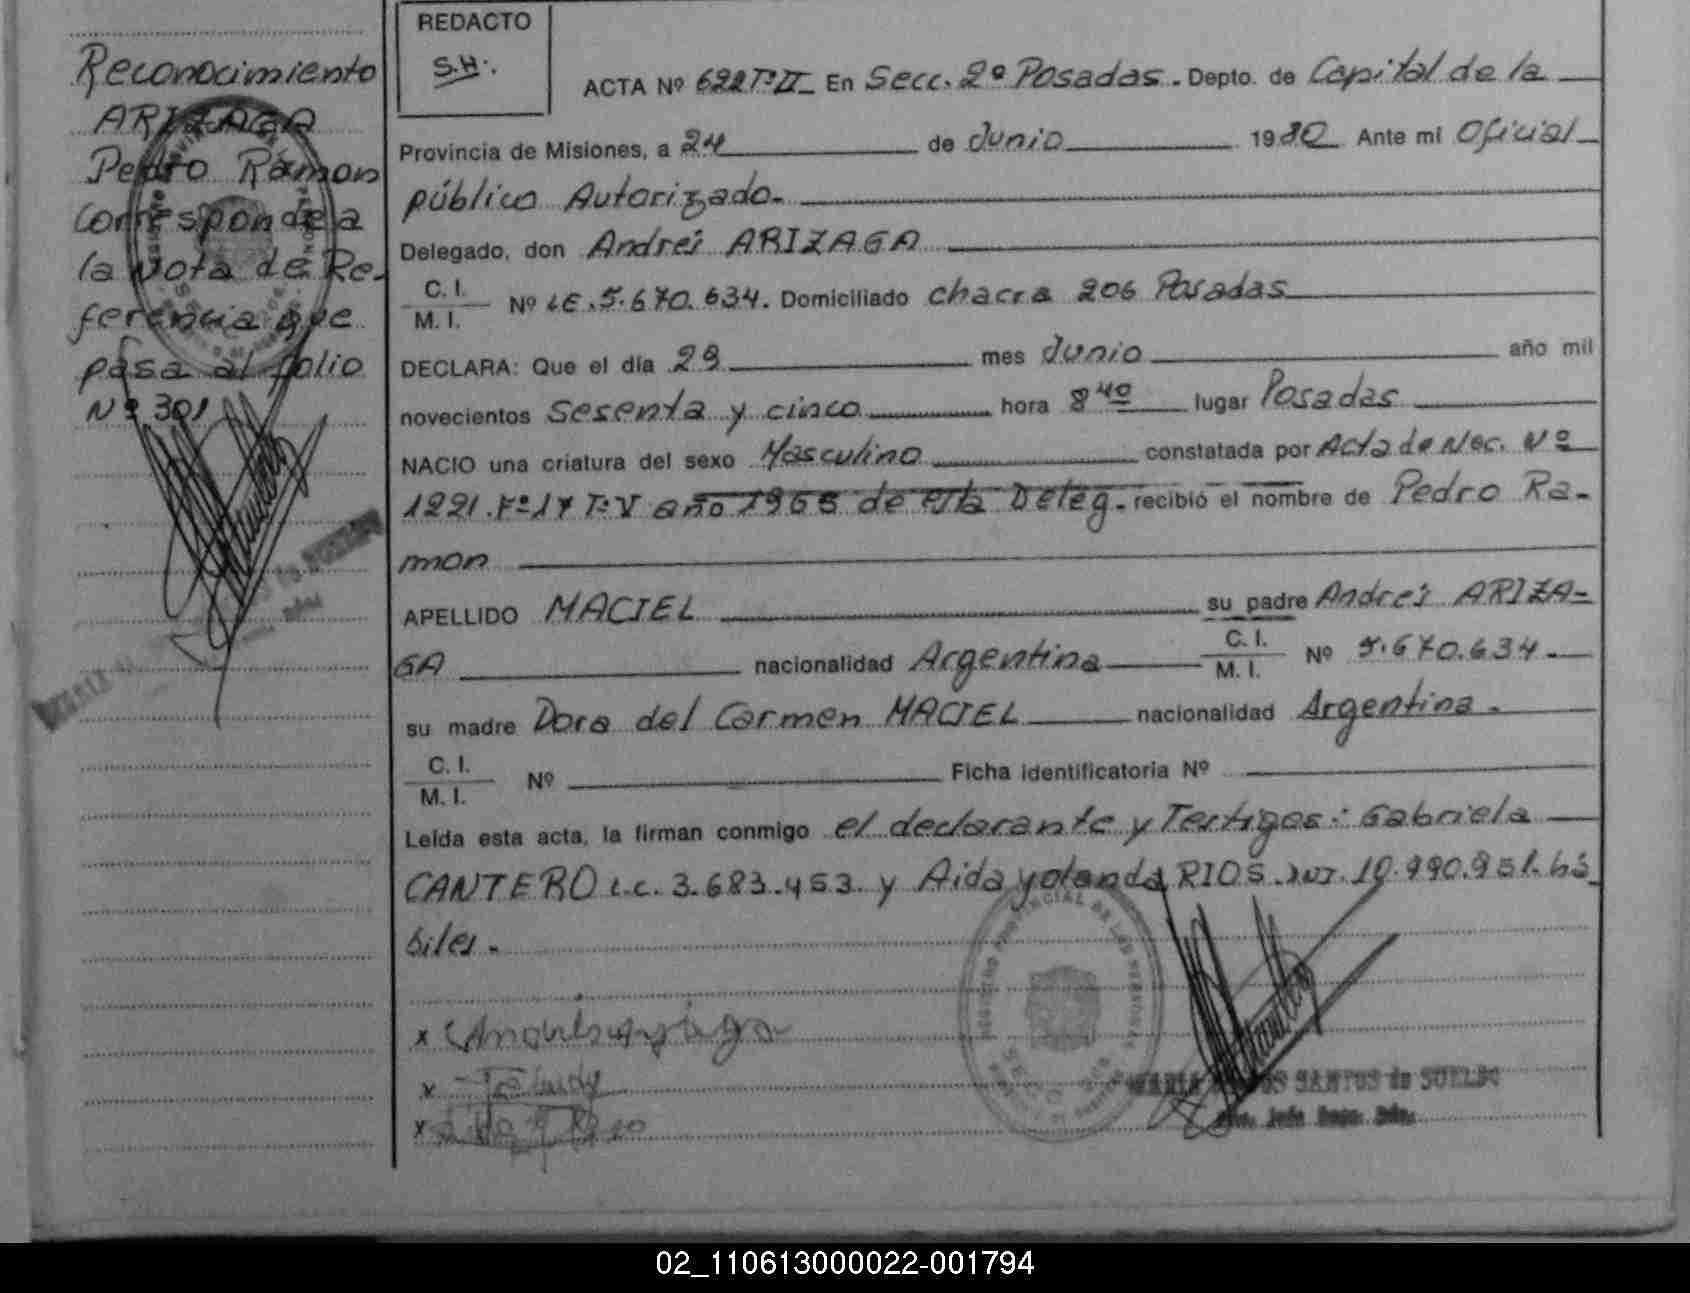 Reconocimiento
ARIZAGA
Pedro Ramon
Corresponde a
la Nota de Re-
ferencia que
pasa al folio
Nº 301
REDACTO
S.H.
ACTA Nº 622 Tº II En Secc. 2ª Posadas. Depto. de Capital de la
Provincia de Misiones, a 24 de Junio 1980 Ante mi Oficial
público Autorizado.
Delegado, don Andrés ARIZAGA
C. I.
M. I. Nº LE. 5.670.634. Domiciliado chacra 206 Posadas
DECLARA: Que el día 29 mes Junio año mil
novecientos Sesenta y cinco hora 8 40 lugar Posadas
NACIO una criatura del sexo Masculino constatada por Acta de Nac. Nº
1221. Fº 17 Tº V año 1965 de esta Deleg. recibió el nombre de Pedro Ra-
mon
APELLIDO MACIEL su padre Andrés ARIZA-
GA nacionalidad Argentina C. I.
M. I. Nº 5.670.634.
su madre Dora del Carmen MACIEL nacionalidad Argentina.
C. I.
M. I. Nº Ficha identificatoria Nº
Leída esta acta, la firman conmigo el declarante y Testigos: Gabriela
CANTERO L.C. 3.683.453. y Aida yolanda RIOS. DNI. 10.990.951. há-
biles.
SANTOS de SUELDO
02_110613000022-001794